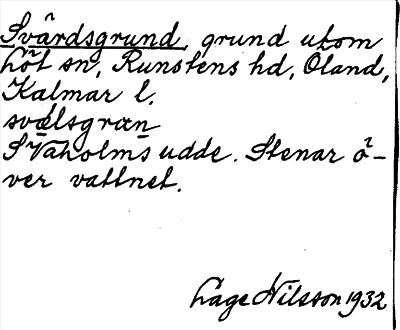 Svärdsgrund, grund utom
Löt sn, Runstens hd, Öland,
Kalmar l.
svælsgræn
S Vaholms udde. Stenar ö-
ver vattnet.
Lage Nilsson 1932